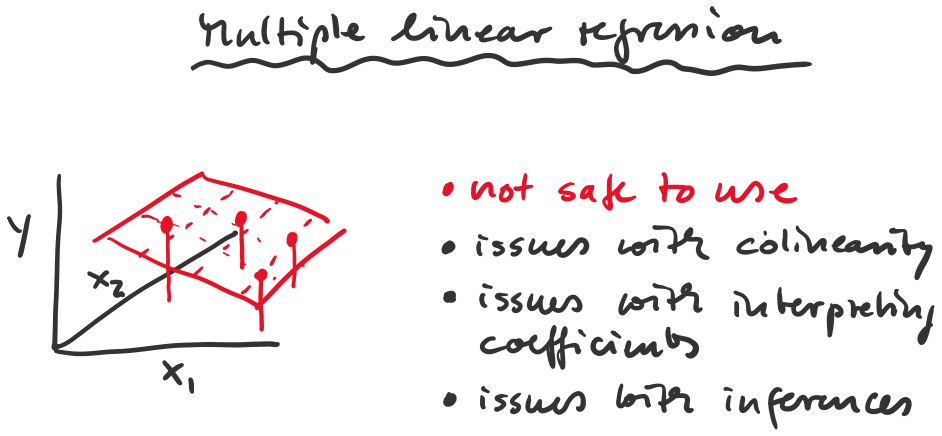 Multiple linear regression
y
x2
x1
• not safe to use
• issues with colinearity
• issues with interpreting
coefficients
• issues with inferences